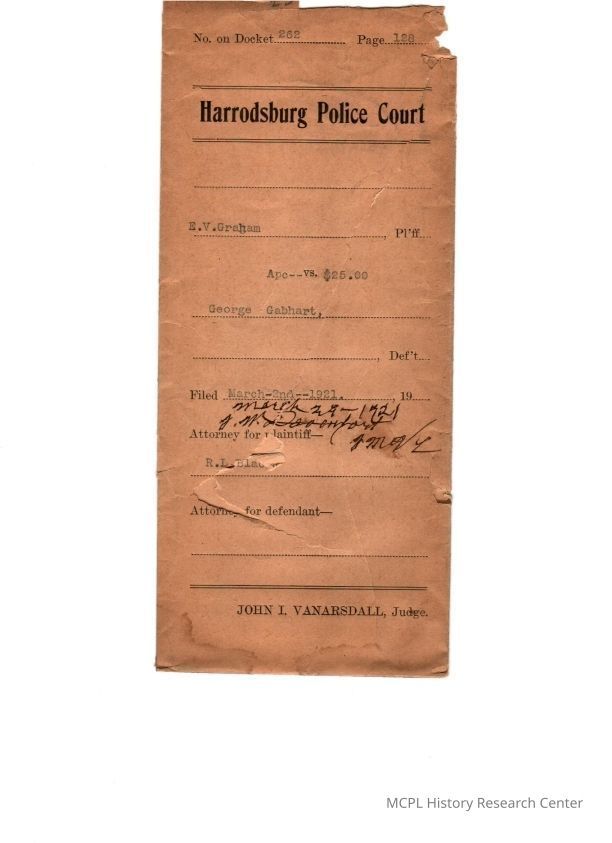 No. on Docket 262 Page 128
Harrodsburg Police Court
E.V.Graham, Pl'ff.
Apc--vs. $25.00
George Gabhart,
, Def't.
Filed March-2nd--1921. , 19
March 22-1921
J.W. Davenport
Attorney for plaintiff—
R.L.Black
Attorney for defendant—
JOHN I. VANARSDALL, Judge.
MCPL History Research Center